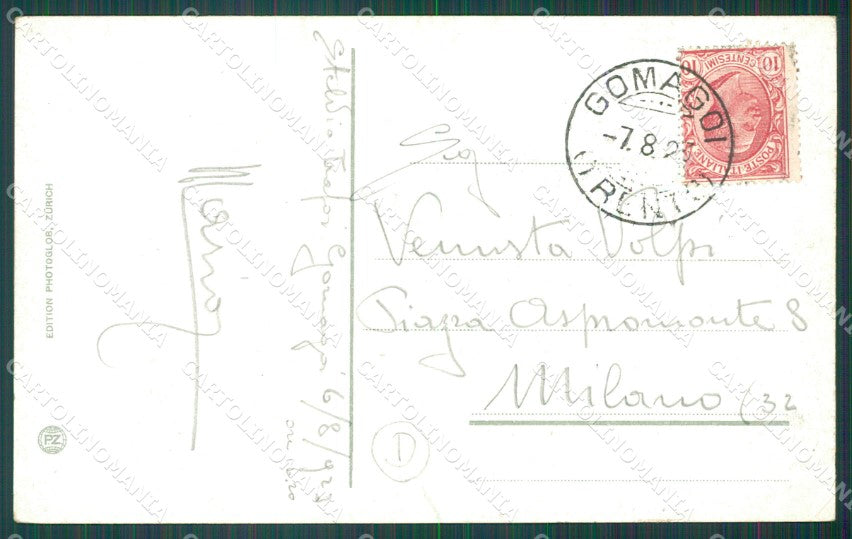 EDITION PHOTOGLOB, ZÜRICH
PZ
Mario
Stelvio Trafoi Gomagoi 6/8/925
ore
GOMAGOI
-7.8.25
(TRENTO)
10
CENTESIMI
10
POSTE ITALIANE
Sig
Venusta Volpi
Piazza Aspromonte 8
Milano (32
D
CARTOLINOMANIA